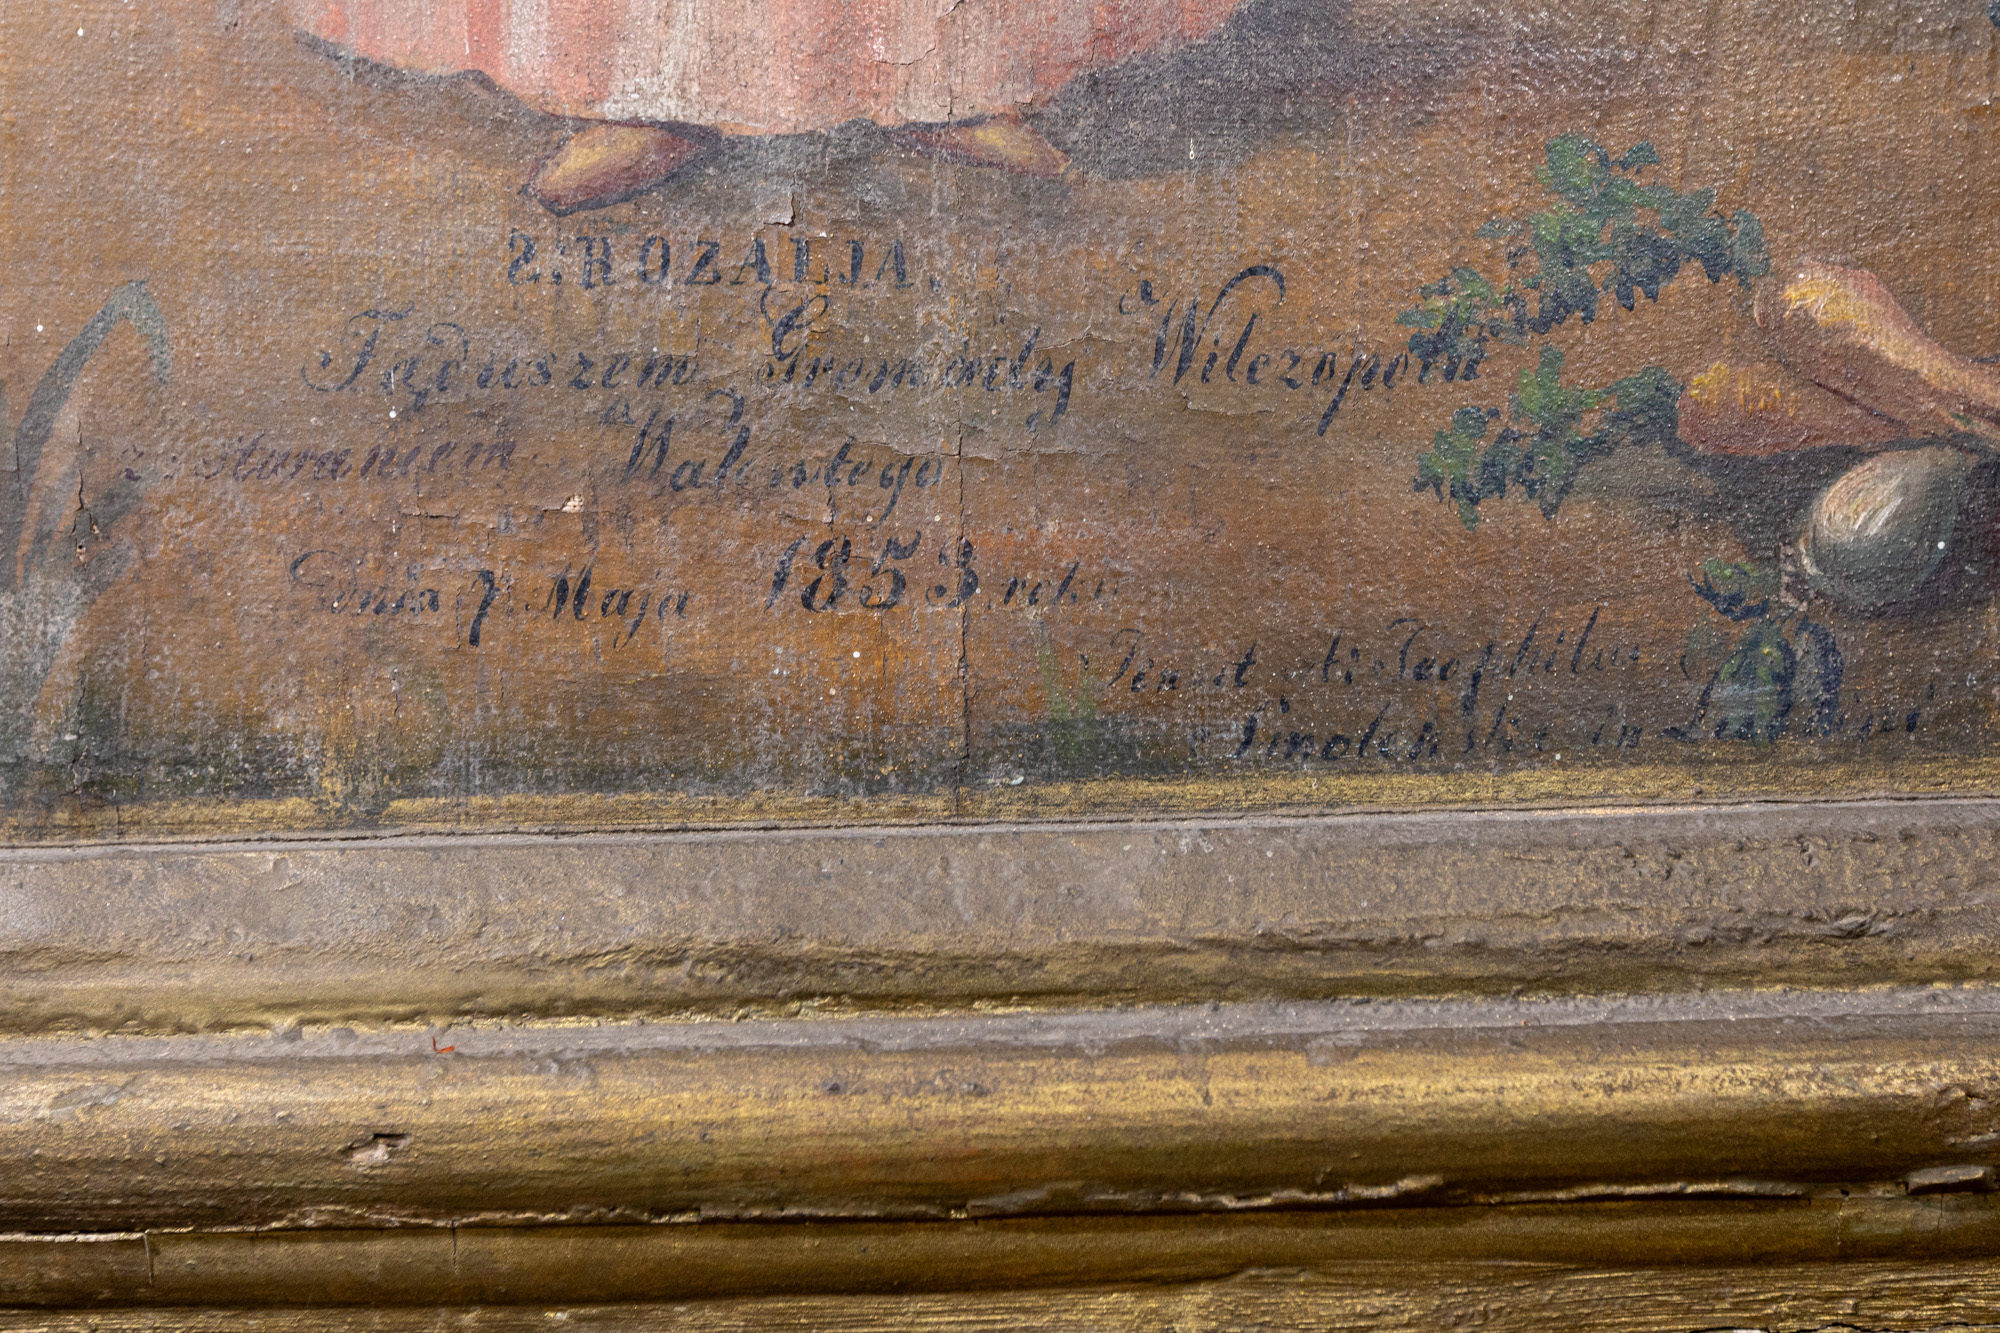 S. ROZALJA.
Fąduszem Gromady Wilczopola
z Staraniem Walentego
dnia 7 Maja 1853 roku
Pinxit Teophilus
in Lublini